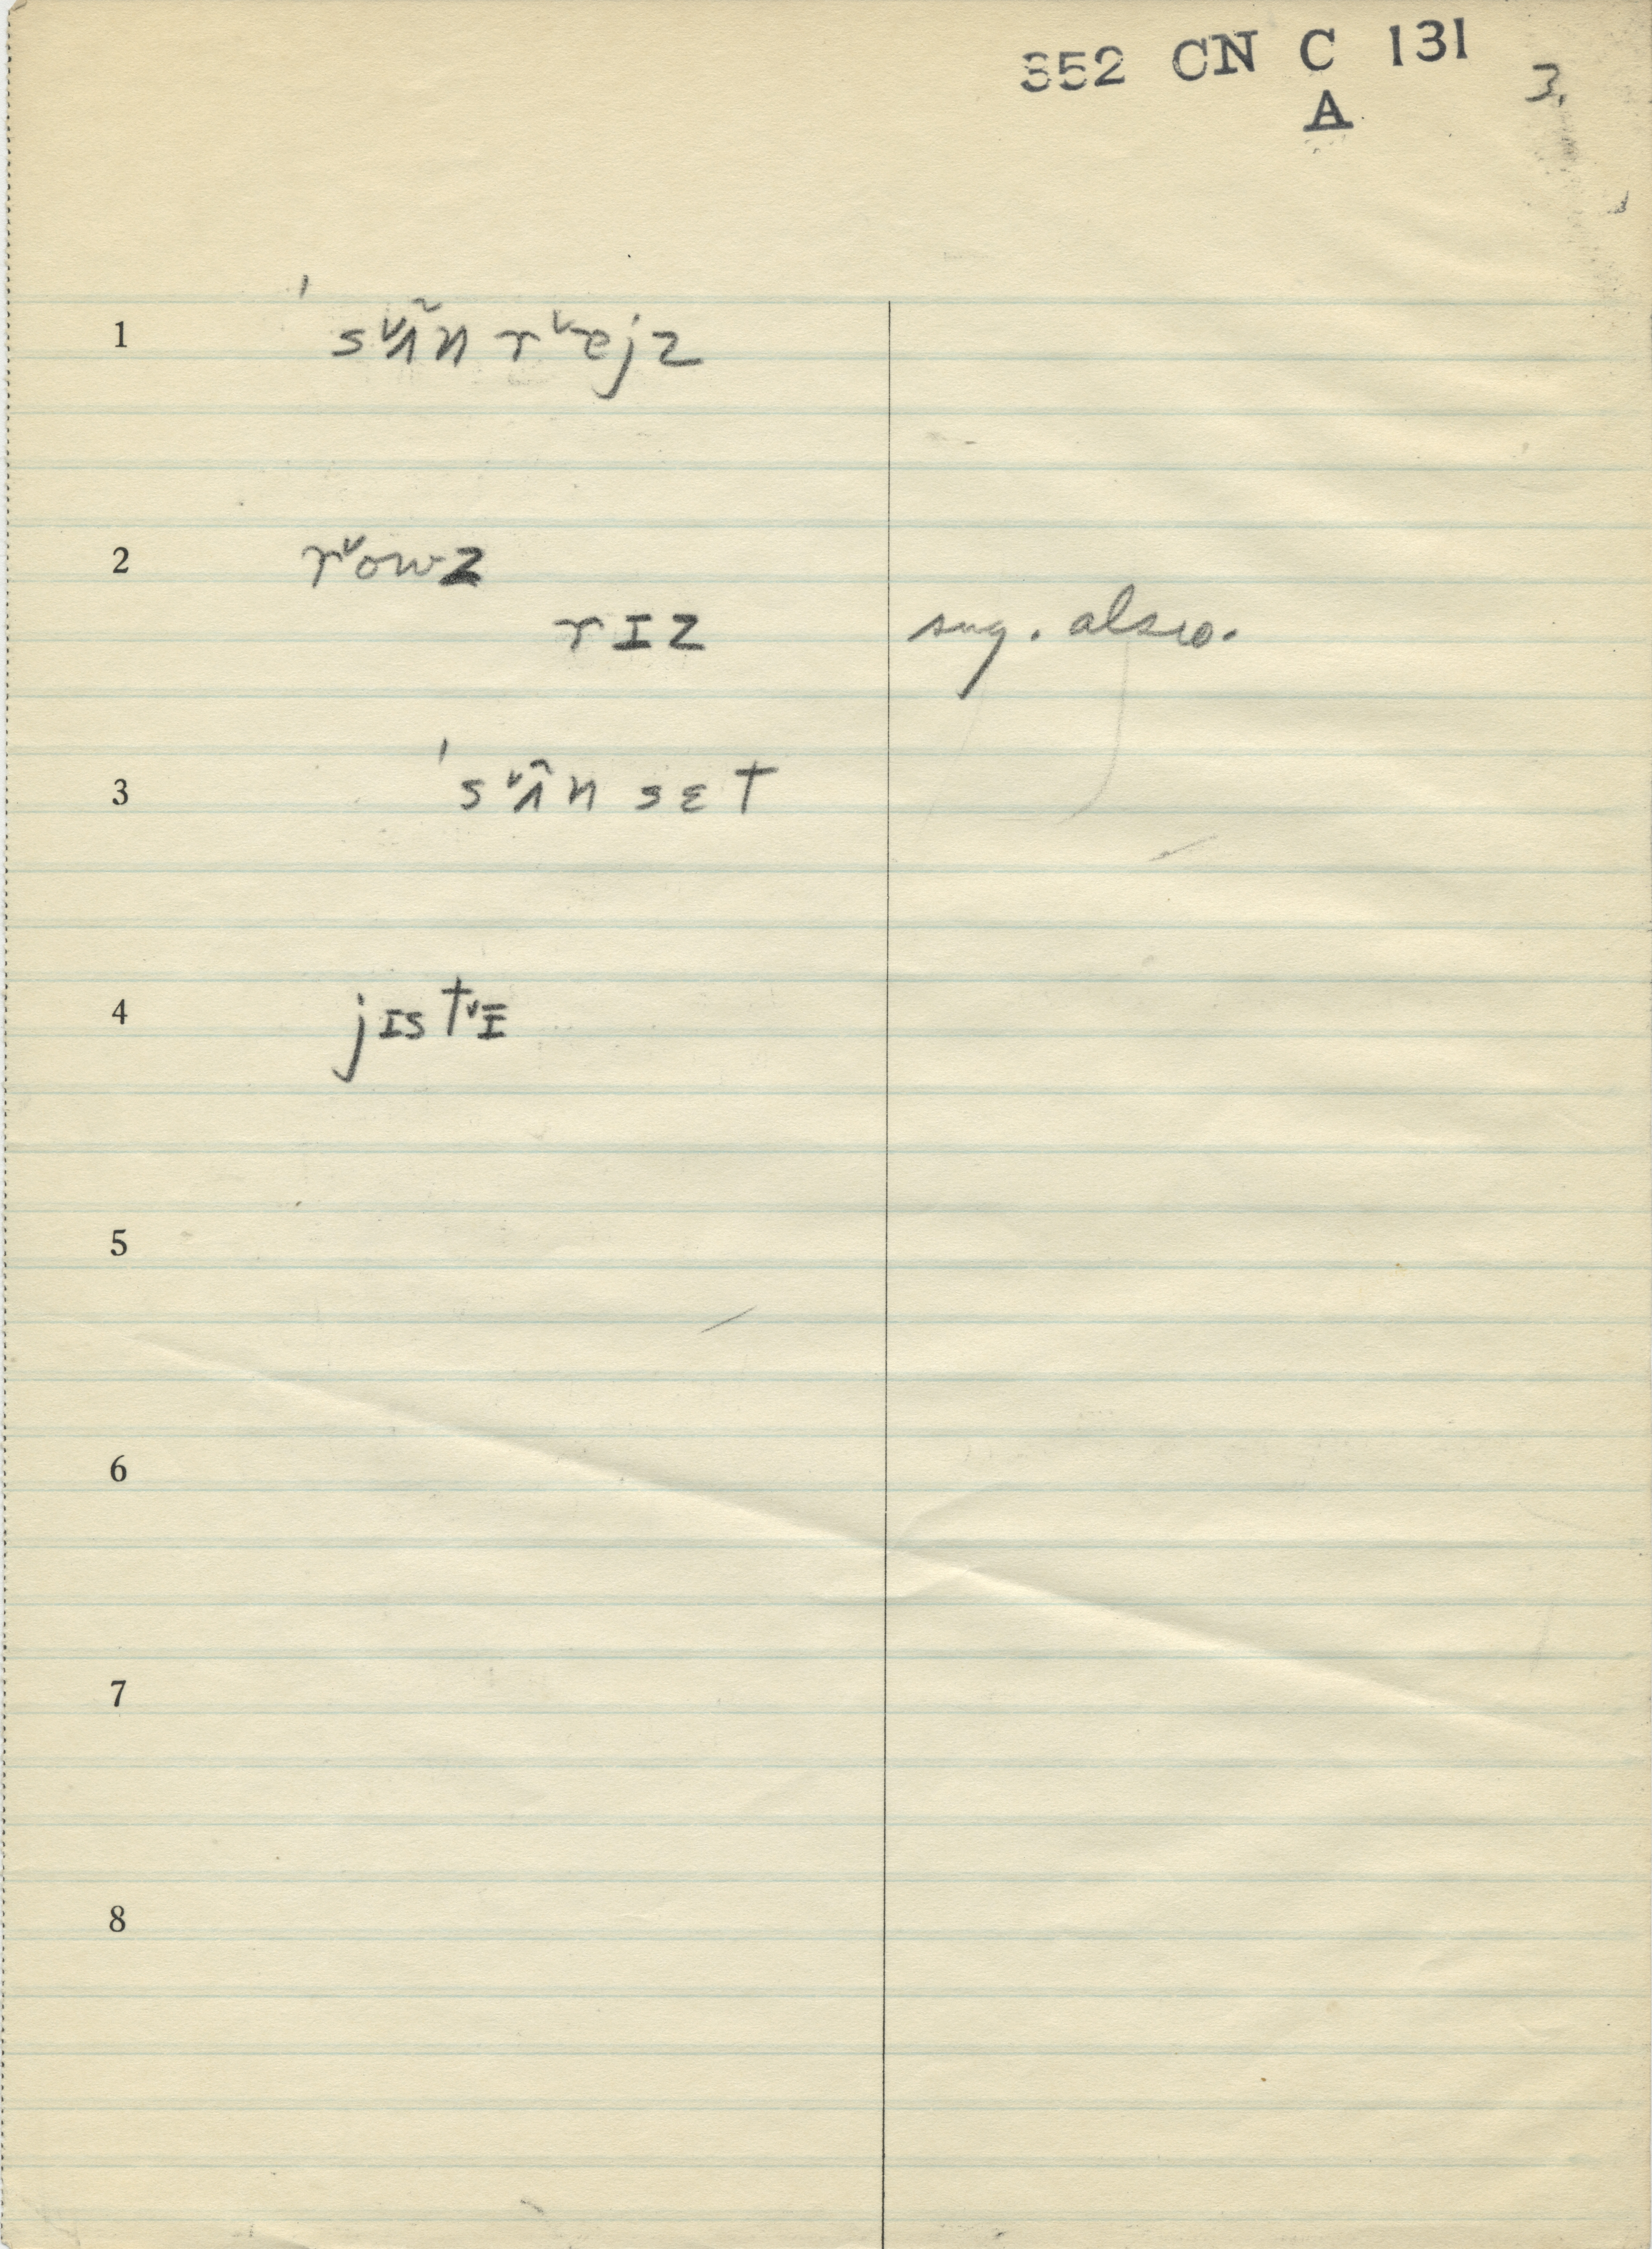 352 CN C 131
A
3.
1 ˈsᵛʌ̃n rᵛejz
2 rᵛowz
rɪz sug. also.
3 ˈsᵛʌ̃n sɛt
4 jɪstᵛɪ
5
6
7
8